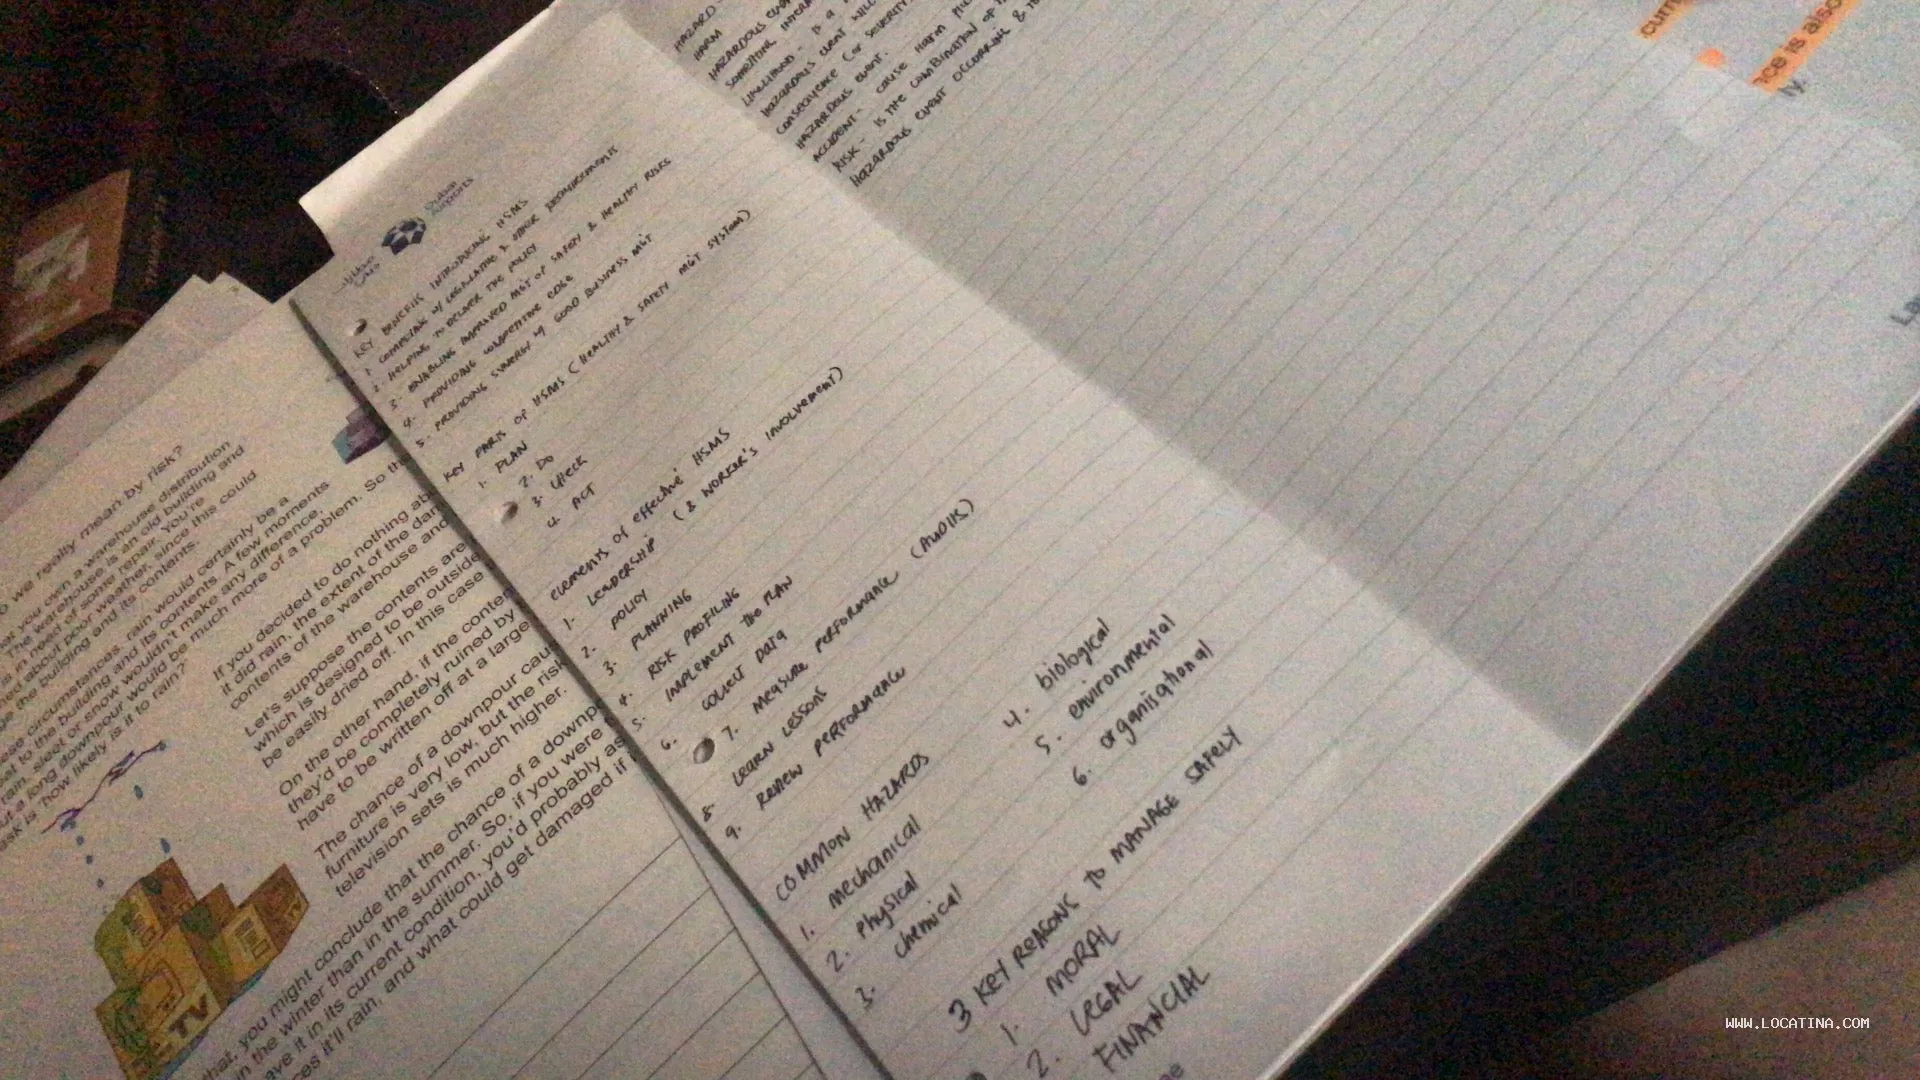 HAZARD
HARM
HAZARDOUS
LIKELIHOOD - IS A
HAZARDOUS EVENT WILL
CONSEQUENCE (OR SEVERITY
HAZARDOUS EVENT.
ACCIDENT - CAUSE HARM
RISK - IS THE COMBINATION OF
HAZARDOUS EVENT OCCURRING &
Dubai
Airports
KEY BENEFITS INTRODUCING HSMS
1. COMPLIAN W/ LEGISLATIVE & OTHER REQUIREMENTS
2. HELPING TO DELIVER THE POLICY
3. ENABLING IMPROVED MGT OF SAFETY & HEALTHY RISKS
4. PROVIDING COMPETITIVE EDGE
5. PROVIDING SYNERGY W/ GOOD BUSINESS MGT
KEY PARTS OF HSMS (HEALTHY & SAFETY MGT SYSTEM)
1. PLAN
2. DO
3. CHECK
4. ACT
elements of effective HSMS
1. LEADERSHIP (& WORKER'S INVOLVEMENT)
2. POLICY
3. PLANNING
4. RISK PROFILING
5. IMPLEMENT PLAN
6. COLLECT DATA
7. MEASURE PERFORMANCE
8. LEARN LESSONS
9. REVIEW PERFORMANCE
COMMON HAZARDS
1. mechanical
2. physical
3. chemical
4. biological
5. environmental
6. organisational
3 KEY REASONS TO MANAGE SAFELY
1. MORAL
2. LEGAL
FINANCIAL
we really mean by risk?
that you own a warehouse distribution
The warehouse is an old building and
is in need of some repair. You're
about poor weather, since this could
the building and its contents.
circumstances, rain would certainly be a
to the building and its contents. A few moments
rain, sleet or snow wouldn't make any difference.
a long downpour would be much more of a problem. So the
ask is 'how likely is it to rain?'
If you decided to do nothing
it did rain, the extent of the
contents of the warehouse and
Let's suppose the contents are
which is designed to be outside
be easily dried off. In this case
On the other hand, if the
they'd be completely ruined by
have to be written off at a large
The chance of a downpour
furniture is very low, but the risk
television sets is much higher.
that, you might conclude that the chance of a
in the winter than in the summer. So, if you were
it in its current condition, you'd probably
it'll rain, and what could get damaged if
TV
is also
ly.
WWW.LOCATINA.COM